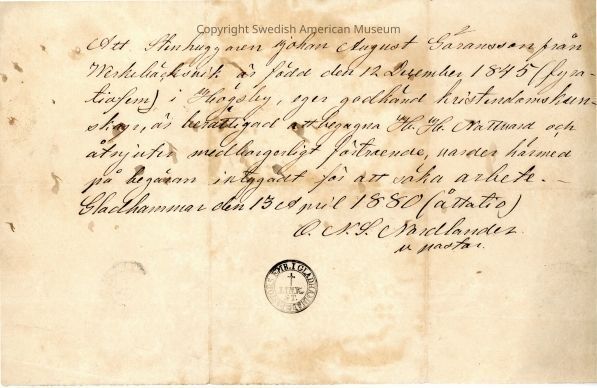 Copyright Swedish American Museum
Att Stenhuggaren Johan August Göransson från
Verkebäcksvik är född den 12 December 1845 (fyra-
tiofem) i Högsby, eger godkänd kristendomskun-
skap, är berättigad att begagna H. H. Nattvard och
åtnjuter medborgerligt förtroende, varder härmed
på begäran intygadt för att söka arbete.—
Gladhammar den 13 April 1880 (åttatio)
C. N. S. Nordlander
v. pastor.
GLADHAMMAR
LINK.
ST.